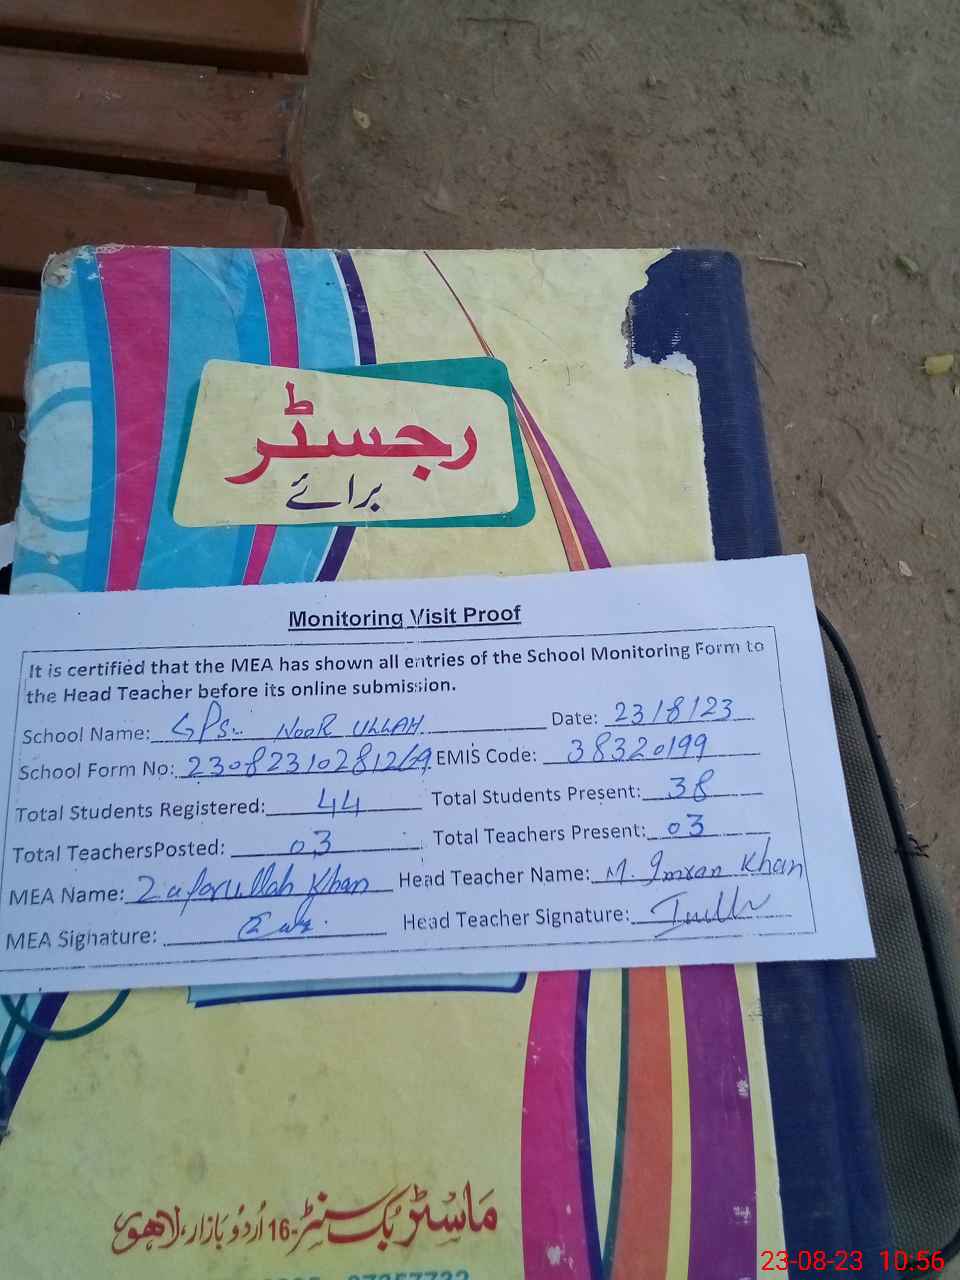 رجسٹر
برائے
Monitoring Visit Proof
It is certified that the MEA has shown all entries of the School Monitoring Form to
the Head Teacher before its online submission.
School Name: GPS.. NOOR ULLAH Date: 23/8/23
School Form No: 2308231028126 EMIS Code: 38320199
Total Students Registered: 44 Total Students Present: 38
Total TeachersPosted: 03 Total Teachers Present: 03
MEA Name: Zafarullah Khan Head Teacher Name: M. Imran Khan
MEA Signature: Head Teacher Signature:
ماسٹر بک سنٹر-16 اُردُو بازار، لاہور
23-08-23 10:56